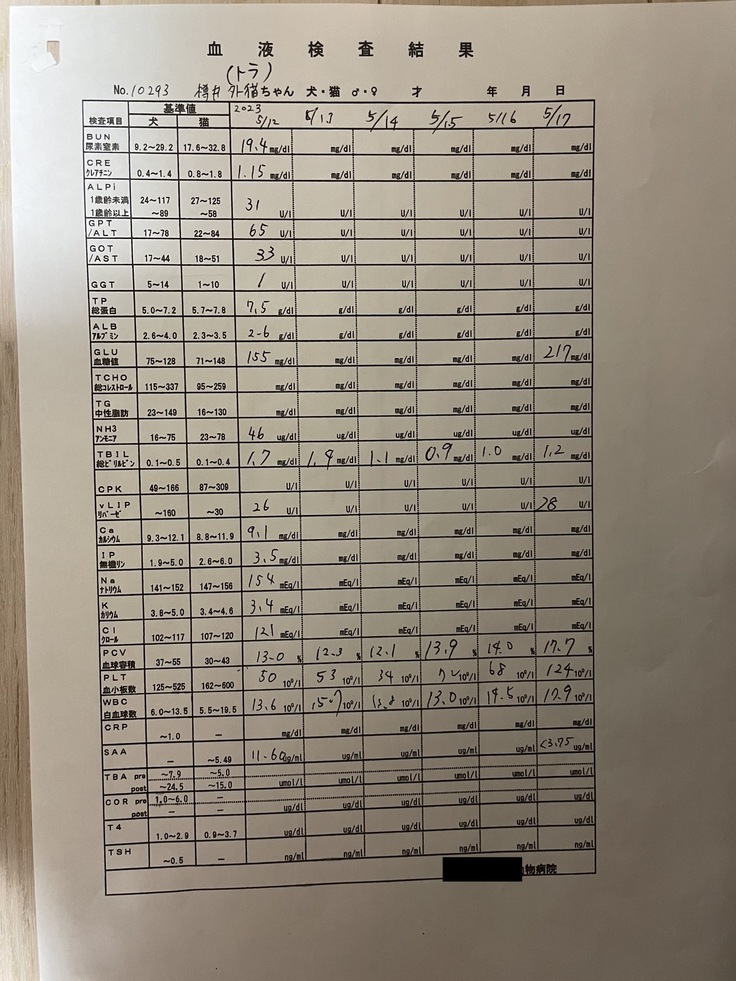 血液検査結果
(トラ)
No.10293 樽井 外猫ちゃん 犬・猫 ♂・♀ 才 年 月 日
検査項目 基準値 2023
犬 猫 5/12 5/13 5/14 5/15 5/16 5/17
BUN
尿素窒素 9.2~29.2 17.6~32.8 19.4mg/dl mg/dl mg/dl mg/dl mg/dl mg/dl
CRE
クレアチニン 0.4~1.4 0.8~1.8 1.15mg/dl mg/dl mg/dl mg/dl mg/dl mg/dl
ALPi
1歳齢未満 24~117 27~125
1歳齢以上 ~89 ~58 31 U/l U/l U/l U/l U/l U/l
GPT
/ALT 17~78 22~84 65 U/l U/l U/l U/l U/l U/l
GOT
/AST 17~44 18~51 33 U/l U/l U/l U/l U/l U/l
GGT 5~14 1~10 1 U/l U/l U/l U/l U/l U/l
TP
総蛋白 5.0~7.2 5.7~7.8 7.5 g/dl g/dl g/dl g/dl g/dl g/dl
ALB
アルブミン 2.6~4.0 2.3~3.5 2-6 g/dl g/dl g/dl g/dl g/dl g/dl
GLU
血糖値 75~128 71~148 155 mg/dl mg/dl mg/dl mg/dl mg/dl 217mg/dl
TCHO
総コレストロール 115~337 95~259 mg/dl mg/dl mg/dl mg/dl mg/dl mg/dl
TG
中性脂肪 23~149 16~130 mg/dl mg/dl mg/dl mg/dl mg/dl mg/dl
NH3
アンモニア 16~75 23~78 46 ug/dl ug/dl ug/dl ug/dl ug/dl ug/dl
TBIL
総ビリルビン 0.1~0.5 0.1~0.4 1.7 mg/dl 1.9 mg/dl 1.1 mg/dl 0.9 mg/dl 1.0 mg/dl 1.2 mg/dl
CPK 49~166 87~309 U/l U/l U/l U/l U/l U/l
vLIP
リパーゼ ~160 ~30 26 U/l U/l U/l U/l U/l 28 U/l
Ca
カルシウム 9.3~12.1 8.8~11.9 9.1 mg/dl mg/dl mg/dl mg/dl mg/dl mg/dl
IP
無機リン 1.9~5.0 2.6~6.0 3.5mg/dl mg/dl mg/dl mg/dl mg/dl mg/dl
Na
ナトリウム 141~152 147~156 154 mEq/l mEq/l mEq/l mEq/l mEq/l mEq/l
K
カリウム 3.8~5.0 3.4~4.6 3.4 mEq/l mEq/l mEq/l mEq/l mEq/l mEq/l
Cl
クロール 102~117 107~120 121 mEq/l mEq/l mEq/l mEq/l mEq/l mEq/l
PCV
血球容積 37~55 30~43 13.0 % 12.3 % 12.1 % 13.9 % 14.0 % 17.7 %
PLT
血小板数 125~525 162~600 50 10⁹/l 53 10⁹/l 34 10⁹/l 10⁹/l 68 10⁹/l 124 10⁹/l
WBC
白血球数 6.0~13.5 5.5~19.5 13.6 10⁹/l 10⁹/l 10⁹/l 13.0 10⁹/l 14.5 10⁹/l 17.9 10⁹/l
CRP ~1.0 - mg/dl mg/dl mg/dl mg/dl mg/dl mg/dl
SAA - ~5.49 11.60ug/ml ug/ml ug/ml ug/ml ug/ml <3.75 ug/ml
TBA pre ~7.9 ~5.0
post ~24.5 ~15.0 umol/l umol/l umol/l umol/l umol/l umol/l
COR pre 1.0~6.0 -
post - - ug/dl ug/dl ug/dl ug/dl ug/dl ug/dl
T4 1.0~2.9 0.9~3.7 ug/dl ug/dl ug/dl ug/dl ug/dl ug/dl
TSH ~0.5 - ng/ml ng/ml ng/ml ng/ml ng/ml ng/ml
物病院